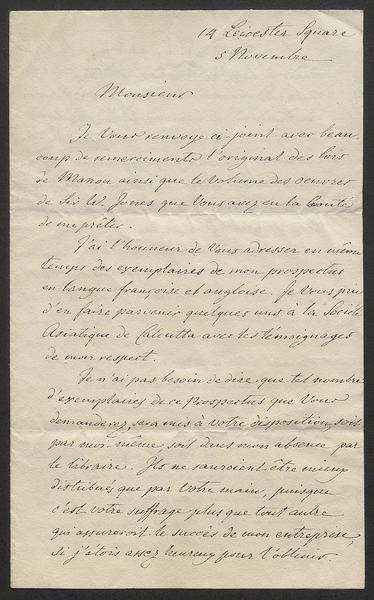 14 Leicester Square
5 Novembre
Monsieur
Je Vous renvoye ci joint avec beau-
coup de remerciments l'original des lois
de Manou ainsi que le Volume des oeuvres
de Sir W. Jones que Vous avez eu la bonté
de me prêter.
J'ai l'honneur de Vous adresser en même
temps des exemplaires de mon prospectus
en langue françoise et angloise. Je Vous prie
d'en faire parvenir quelques uns à la Société
Asiatique de Calcutta avec les témoignages
de mon respect.
Je n'ai pas besoin de dire que tel nombre
d'exemplaires de ce Prospectus que Vous
demanderez, sera mis à Votre disposition soit
par moi-même, soit dans mon absence par
le libraire. Ils ne sauroient être mieux
distribués que par Votre main, puisque
c'est votre suffrage plus que tout autre
qui assureroit le succès de mon entreprise,
si j'étois assez heureux pour l'obtenir.